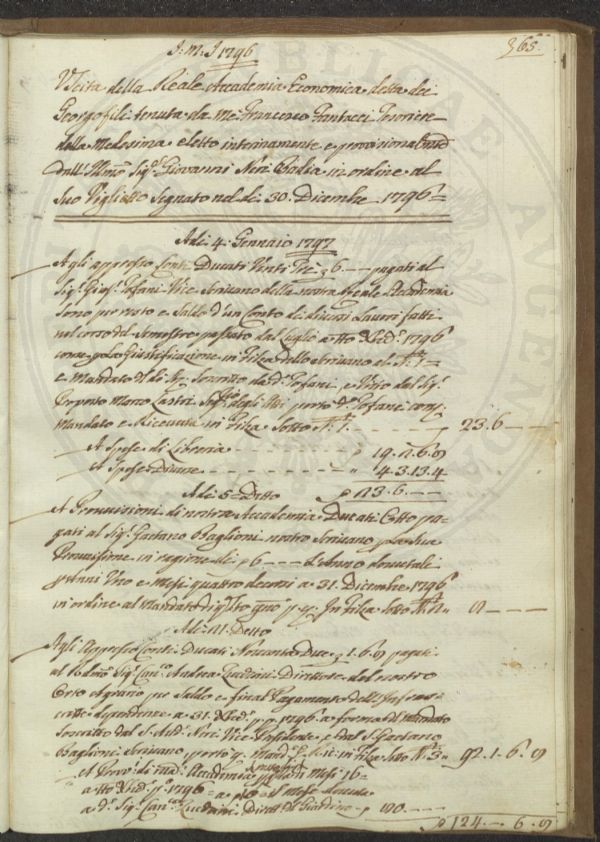 J. M. J 1796
365.
Uscita della Reale Accademia Economica detta dei
Georgofili tenuta da me Francesco Fantacci Tesoriere
della Medesima eletto interinamente e provvisionalmte
dall' Illmo Sigr Giovanni Neri Badia in ordine al
Suo Viglietto Segnato nel dì 30. Dicembre 1796=
Adì 4. Gennaio 1797
Agli appresso Conti Ducati Venti Tre 6 — pagati al
Sigr Tofani Vice Scrivano della nostra Reale Accademia
sono per resto e Saldo d'un Conto di diversi Lavori fatti
nel corso del Semestre passato dal Luglio a tto Xbre 1796
come Giustificazione in Filza dello Scrivano al N. 1=
e Mandato Soscritto da do Tofani, e Visto dal Sigr
Proposto Marco Lastri Segrio degli Atti porto do Tofani come
Mandato e Ricevuta in Filza Sotto N. 1. 23. 6 —
A Spese di Libreria 19. 2. 6. 8
A Spese Diverse 4. 3. 13. 4
23. 6. —
Adì 5 Detto
A Provvisioni di nostra Accademia Ducati Otto pa-
gati al Sigr Gaetano Baglioni nostro Scrivano per sua
Provvisione in ragione di 6 — — L'Anno dovutali
per anni Uno e Mesi quattro decorsi a 31. Dicembre 1796
in ordine al Mandato di qto gno In Filza Sotto N. 2 8 — —
Adì 11. Detto
Agli Appresso Conti Ducati Novanta Due 1. 6. 8 pagati
al Sigr Canco Andrea Zucchini Direttore del nostro
Orto Agrario per Saldo e final Pagamento dell' Infras-
critte dependenze a 31. Xbre 1796 a forma del Mandato
Soscritto dal S. Audre Neri Vice Presidente, e dal S. Gaetano
Baglioni Scrivano, porto Mando e Ric. in Filza Sotto N. 3 92. 1. 6. 8
A Accademia Mesi 16=
a tto Xbre 1796 Mese dovute
a do Sigr Canco Zucchini Dirett. del Giardino
124. — 6. 8